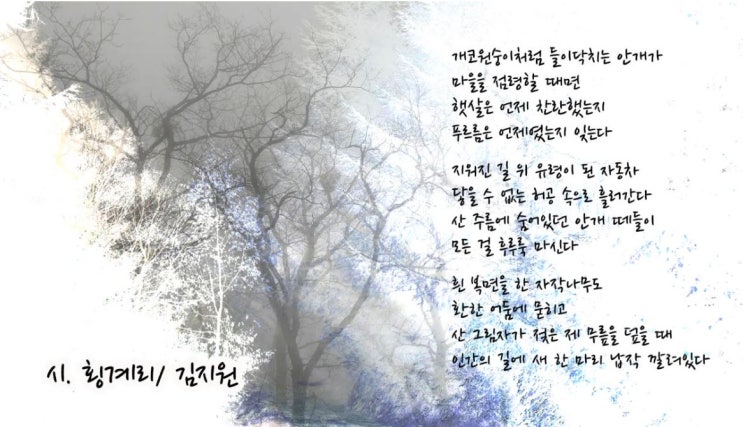 개코원숭이처럼 들이닥치는 안개가
마을을 점령할 때면
햇살은 언제 찬란했는지
푸르름은 언제였는지 잊는다
지워진 길 위 유령이 된 자동차
닿을 수 없는 허공 속으로 흘러간다
산 주름에 숨어있던 안개 떼들이
모든 걸 후루룩 마신다
흰 복면을 한 자작나무도
환한 어둠에 묻히고
산 그림자가 젖은 제 무릎을 덮을 때
인간의 길에 새 한 마리 납작 깔려있다
시. 횡계리/ 김지원